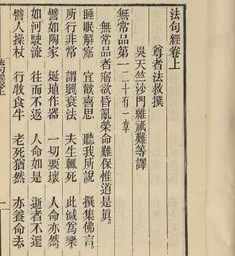 法句經卷上
尊者法救撰
吳天竺沙門維祇難等譯
無常品第一二十有一章
無常品者寤欲昏亂榮命難保惟道是眞
睡眠解寤 宜歡喜思 聽我所說 撰集佛言
所行非常 謂興衰法 夫生輒死 此滅爲樂
譬如陶家 埏埴作器 一切要壞 人命亦然
如河駛流 往而不返 人命如是 逝者不還
譬人操杖 行牧食牛 老死猶然 亦養命去